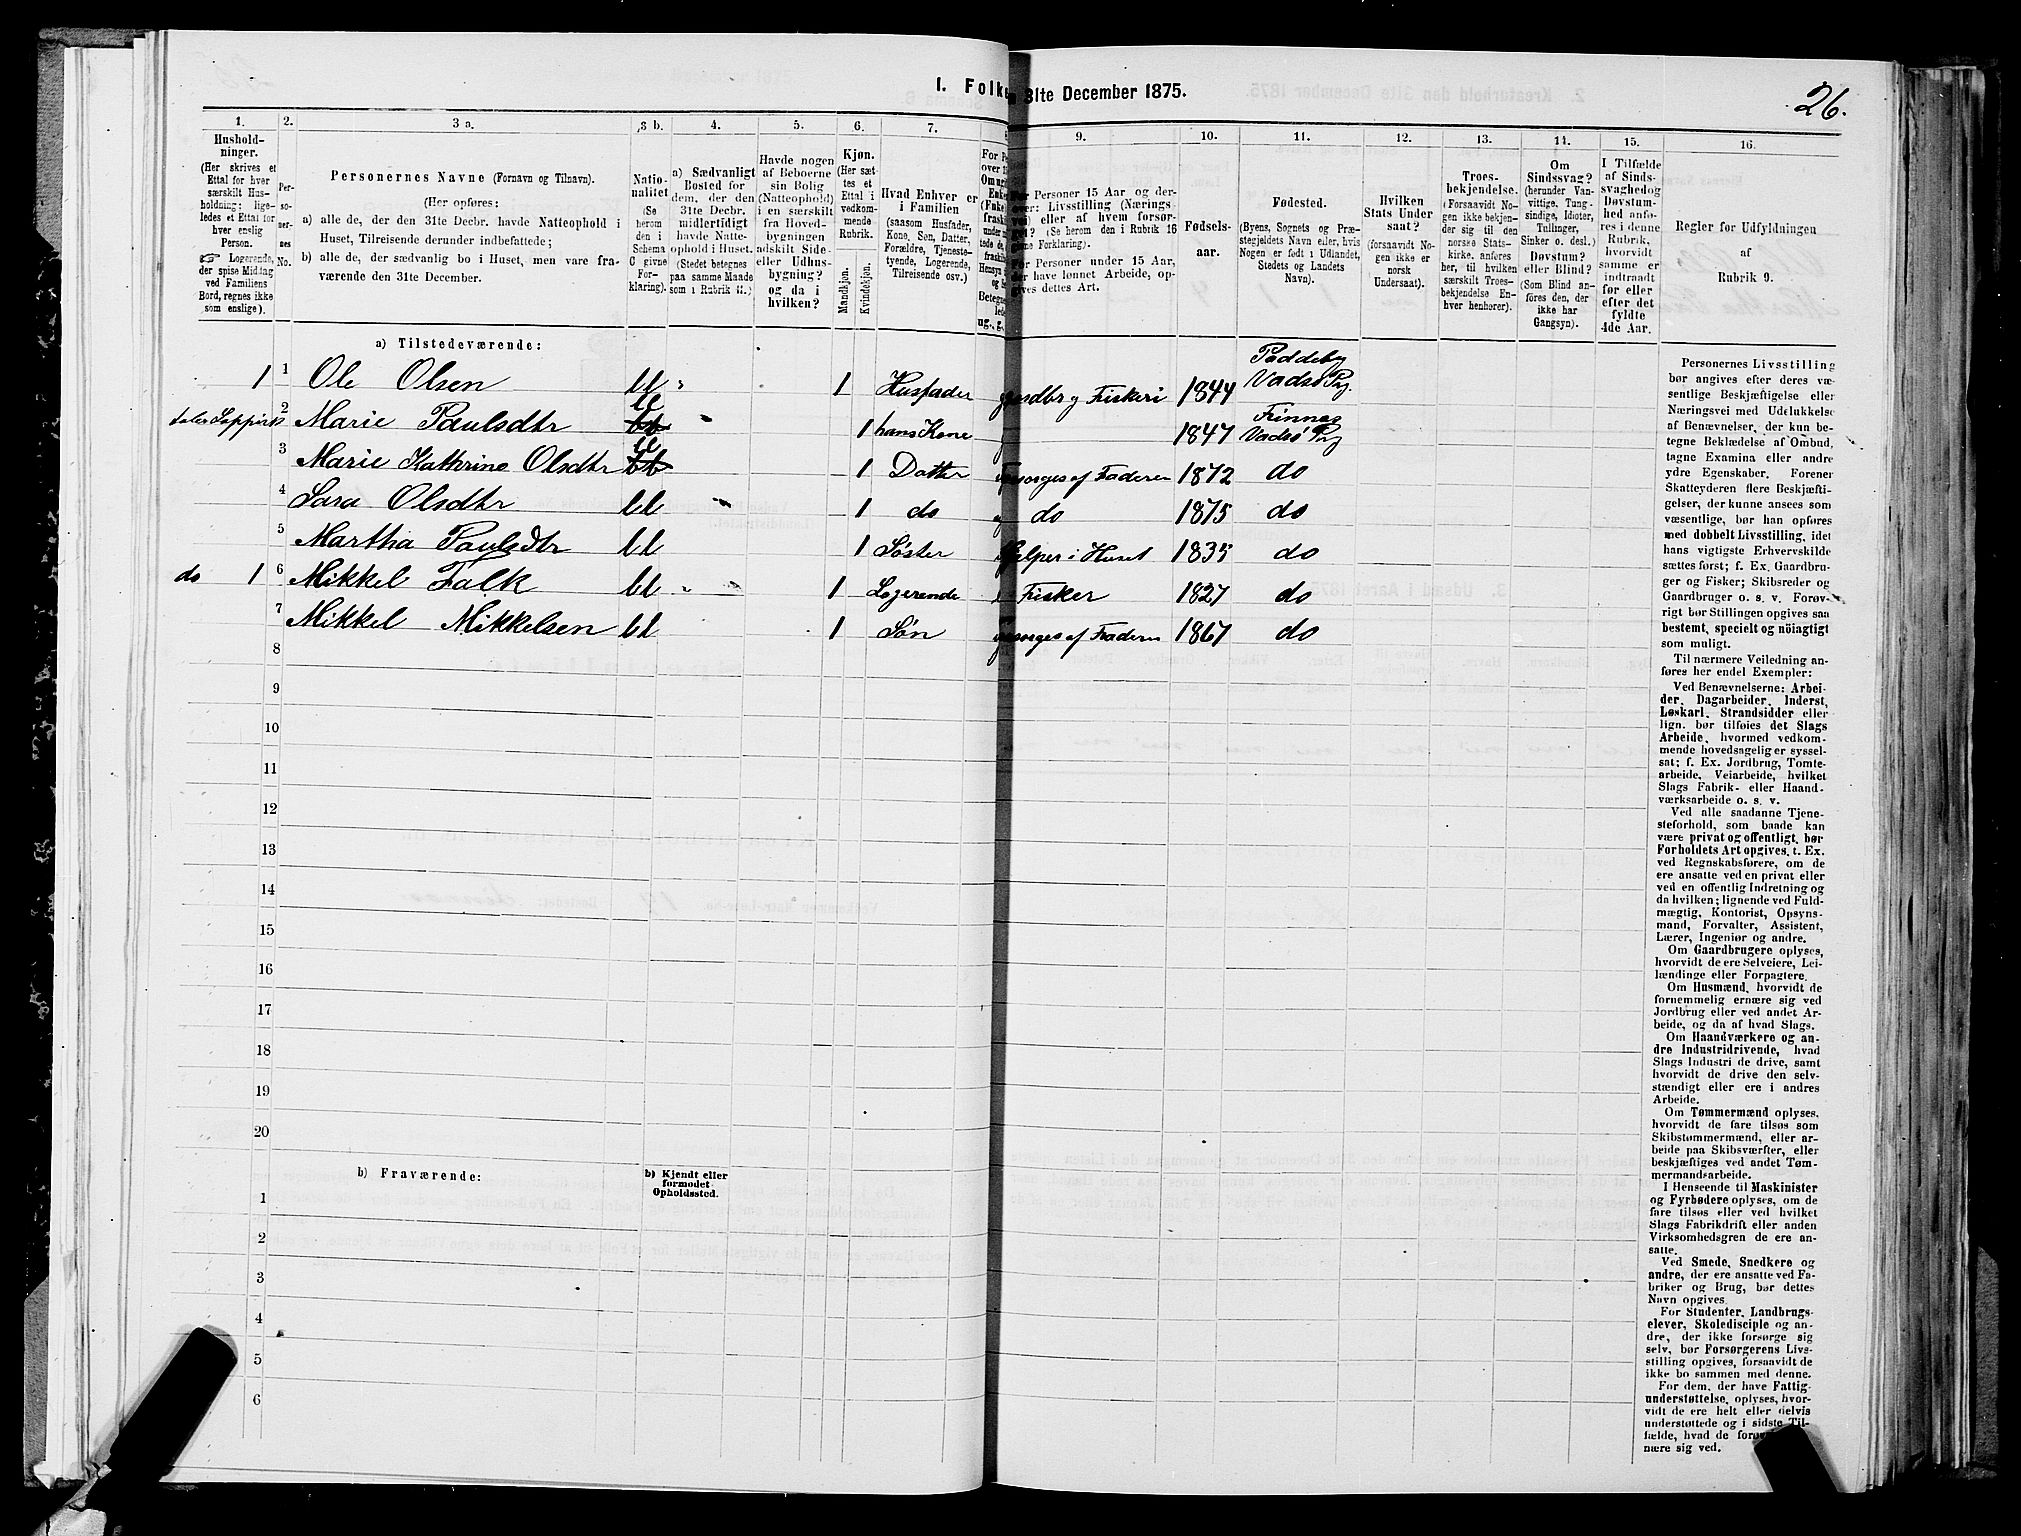 1. Folke
n 31te December 1875.
26.
1.
Hushold-
ninger.
(Her skrives et
Ettal for hver
særskilt Hus-
holdning; lige-
ledes et Ettal for
hver enslig
Person.
Logerende,
der spise Middag
ved Familiens
Bord, regnes ikke
som enslige).
2.
Per-
so-
ner-
nes
No.
3 a.
Personernes Navne (Fornavn og Tilnavn).
(Her opføres:
a) alle de, der den 31te Decbr. havde Natteophold i
Huset, Tilreisende derunder indbefattede;
b) alle de, der sædvanlig bo i Huset, men vare fra-
værende den 31te December.
3 b.
Natio-
nalitet
(Se
herom
den i
Schema
G givne
For-
klaring).
4.
a) Sædvanligt
Bosted for
dem, der den
31te Decbr.
midlertidigt
havde Natte-
ophold i Huset.
(Stedet betegnes
paa samme Maade
som i Rubrik 11.)
5.
Havde nogen
af Beboerne
sin Bolig
(Natteophold)
i en særskilt
fra Hoved-
bygningen
adskilt Side-
eller Udhus-
bygning?
og da i
hvilken?
6.
Kjøn.
(Her sæt-
tes et
Ettal i
vedkom-
mende
Rubrik.
Mandkjøn.
Kvindekjøn.
7.
Hvad Enhver er
i Familien
(saasom Husfader,
Kone, Søn, Datter,
Forældre, Tjeneste-
tyende, Logerende,
Tilreisende osv.)
9.
10.
Fødsels-
aar.
11.
Fødested.
(Byens, Sognets og Præ-
stegjeldets Navn eller, hvis
Nogen er født i Udlandet,
Stedets og Landets
Navn).
12.
Hvilken
Stats Under
saat?
(forsaavidt No-
gen ikke er
norsk
Undersaat).
13.
Troes-
bekjendelse.
(Forsaavidt No-
gen ikke bekjen-
der sig til den
norske Stats-
kirke. anføres
her, til hvilken
særskilt Troes-
bekjendelse En-
hver henhører).
14.
Om
Sindssvag?
(herunder Van-
vittige, Tung-
sindige, Idioter,
Tullinger,
Sinker o. desl.)
Døvstum?
eller Blind?
(Som Blind an-
føres den, der
ikke har
Gangsyn).
15.
I Tilfælde
af Sinds-
svaghed og
Døvstum-
hed anfø-
res i denne
Rubrik,
hvorvidt
samme er
indtraadt
før eller
efter det
fyldte
4de Aar.
16.
Regler for Udfyldningen
af
Rubrik 9.
a) Tilstedeværende:
1 1 Ole Olsen bl 1 Husfader gaardbr og Fiskeri 1844 Paddeby Vadsø Pg.
taler Lappisk 2 Marie Paulsdtr bl 1 hans Kone 1847 Finnes Vadsø Pg
3 Marie Kathrine Olsdtr bl 1 Datter forsørges af Faderen 1872 do
4 Sara Olsdtr bl 1 do do 1875 do
5 Martha Paulsdtr bl 1 Søster hjelper i Huset 1835 do
do 1 6 Mikkel Falk bl 1 Logerende Fisker 1827 do
7 Mikkel Mikkelsen bl 1 Søn forsørges af Faderen 1867 do
8
9
10
11
12
13
14
15
16
17
18
19
20
b) Fraværende:
b) Kjendt eller
formodet
Opholdssted.
1
2
3
4
5
6
Personernes Livsstilling
bør angives efter deres væ-
sentlige Beskjæftigelse eller
Næringsvei med Udelukkelse
af Benævnelser, der kun be-
tegne Beklædelse af Ombud,
tagne Examina eller andre
ydre Egenskaber. Forener
Skatteyderen flere Beskjæfti-
gelser, der kunne ansees som
væsentlige, bør han opføres
med dobbelt Livsstilling, idet
hans vigtigste Erhvervskilde
sættes først; f. Ex. Gaardbru-
ger og Fisker; Skibsreder og
Gaardbruger o. s. v. Forøv-
rigt bør Stillingen opgives saa
bestemt, specielt og nöiagtigt
som muligt.
Til nærmere Veiledning an-
føres her endel Exempler:
Ved Benævnelserne: Arbei-
der, Dagarbeider, Inderst,
Løskarl, Strandsidder eller
lign. bør tilføies det Slags
Arbeide, hvormed vedkom-
mende hovedsagelig er syssel-
sat; f. Ex. Jordbrug, Tomte-
arbeide, Veiarbeide, hvilket
Slags Fabrik- eller Haand-
værksarbeide o. s. v.
Ved alle saadanne Tjene-
steforhold, som baade kan
være privat og offentligt, bør
Forholdets Art opgives, t. Ex.
ved Regnskabsførere, om de
ere ansatte ved en privat eller
ved en offentlig Indretning og
da hvilken; lignende ved Fuld-
mægtig, Kontorist, Opsyns-
mand, Forvalter, Assistent,
Lærer, Ingeniør og andre.
Om Gaardbrugere oplyses,
hvorvidt de ere Selveiere, Lei-
lændinge eller Forpagtere.
Om Husmænd, hvorvidt de
fornemmelig ernære sig ved
Jordbrug eller ved andet Ar-
beide, og da af hvad Slags.
Om Haandværkere og an-
dre Industridrivende, hvad
Slags Industri de drive, samt
hvorvidt de drive den selv-
stændigt eller ere i andres
Arbeide.
Om Tømmermænd oplyses,
hvorvidt de fare tilsøs som
Skibstømmermænd, eller ar-
beide paa Skibsværfter, eller
beskjæftiges ved andet Tøm-
mermandsarbeide.
I Henseende til Maskinister
og Fyrbødere oplyses, om de
fare tilsøs eller ved hvilket
Slags Fabrikdrift eller anden
Virksomhedsgren de ere an-
satte.
Ved Smede, Snedkere og
andre, der ere ansatte ved Fa-
briker og Brug, bør dettes
Navn opgives.
For Studenter, Landbrugs-
elever, Skoledisciple og an-
dre, der ikke forsørge sig
selv, bør Forsørgerens Livs-
stilling opgives, forsaavidt de
ikke bo sammen med denne.
For dem, der have Fattig-
understøttelse, oplyses, hvor-
vidt de ere helt eller delvis
understøttede og i sidste Til-
fælde, hvad de
nære sig ved.